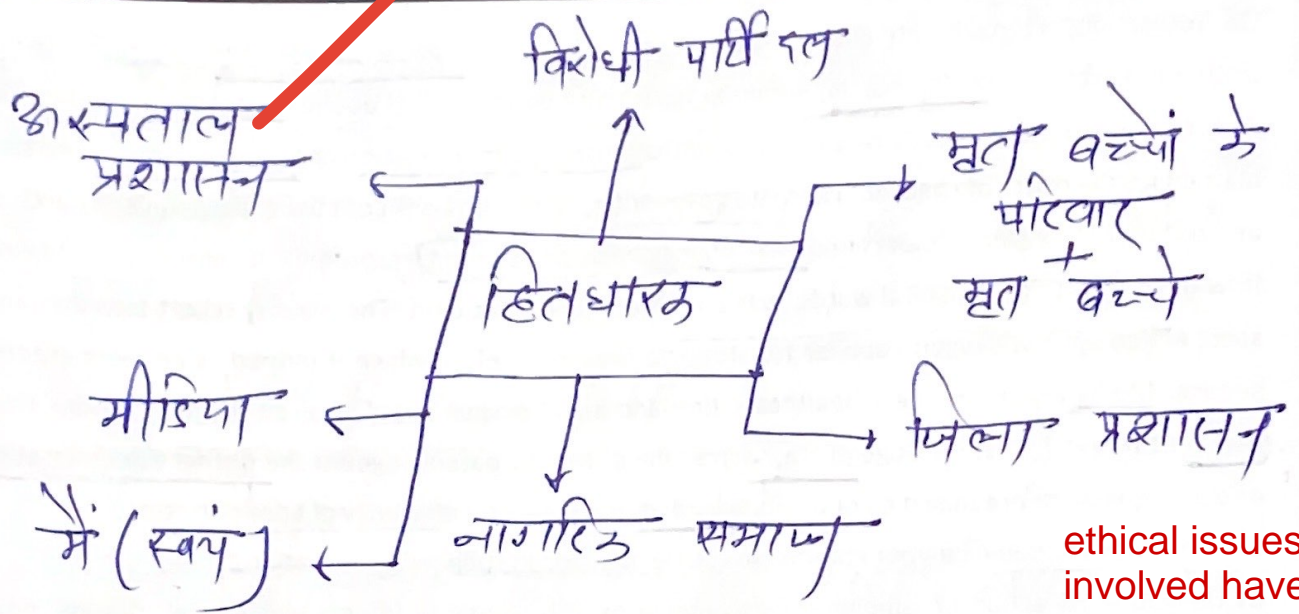 विरोधी पार्टी दल
अस्पताल
प्रशासन
मृत बच्चों के
परिवार
+
मृत बच्चे
हितधारक
मीडिया
जिला प्रशासन
मैं (स्वयं)
नागरिक समाज
ethical issues
involved have